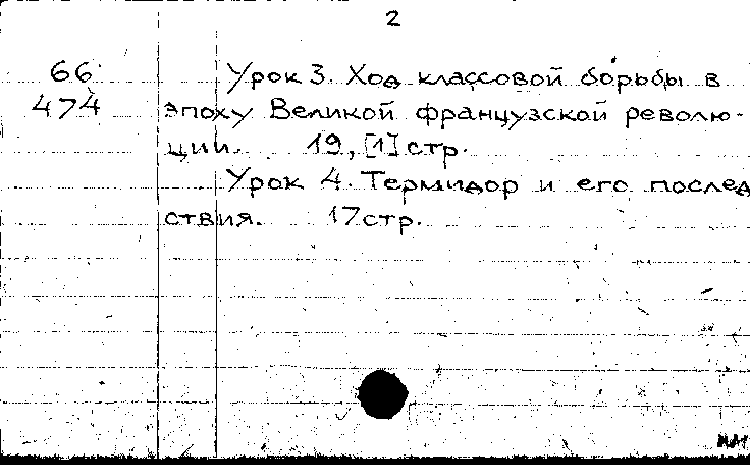 2
66 Урок 3. Ход классовой борьбы в
474 эпоху Великой французской револю-
ции. 19, [1] стр.
Урок 4. Термидор и его послед
ствия. 17 стр.